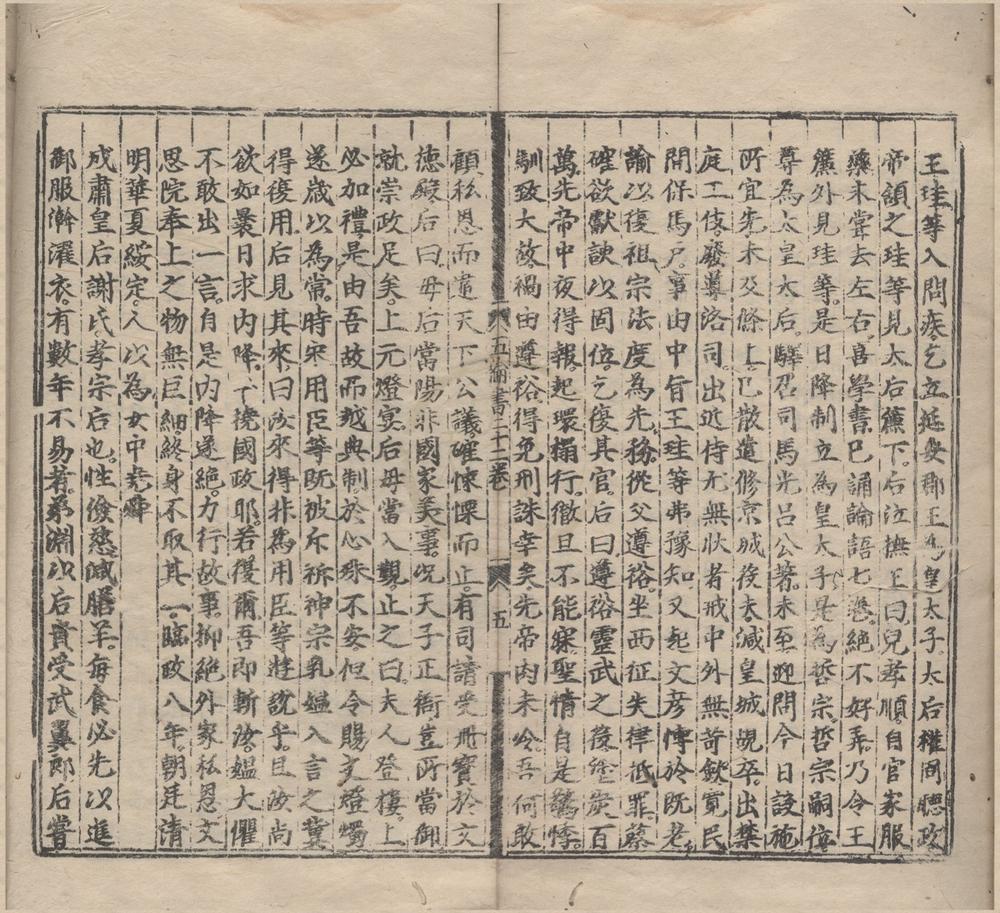 王珪等入問疾乞立延安郡王為皇太子太后權同聽政
帝頷之珪等見太后簾下后泣撫王曰兒孝順自官家服
藥未嘗去左右喜學書已誦論語七卷絶不好弄乃令王
簾外見珪等是日降制立為皇太子是為哲宗哲宗嗣位
尊為太皇太后驛召司馬光呂公著未至迎問今日設施
所宜先未及條上已散遣修京城役夫減皇城覘卒出禁
庭工伎廢導洛司出近侍尤無狀者戒中外無苛歛寛民
間保馬戸事由中旨王珪等弗豫知又起文彦博於既老
諭以復祖宗法度為先務從父遵裕坐西征失律抵罪蔡
確欲獻諛以固位乞復其官后曰遵裕靈武之役塗炭百
萬先帝中夜得報起環榻行徹旦不能寐聖情自是驚悸
馴致大故禍由遵裕得免刑誅幸矣先帝肉未冷吾何敢
五倫書二十二卷 五
顧私恩而違天下公議確悚慄而止有司請受冊寶於文
德殿后曰母后當陽非國家美事况天子正衙豈所當御
就崇政足矣上元燈宴后母當入觀止之曰夫人登樓上
必加禮是由吾故而越典制於心殊不安但令賜文燈燭
遂歳以為常時宋用臣等既被斥祈神宗乳媼入言之冀
得復用后見其來曰汝來得非為用臣等遊說乎且汝尚
欲如曩日求内降干撓國政耶若復爾吾即斬汝媼大懼
不敢出一言自是内降遂絶力行故事抑絶外家私恩文
思院奉上之物無巨細終身不取其一臨政八年朝廷清
明華夏綏定人以為女中堯舜
成肅皇后謝氏孝宗后也性儉慈減膳羊每食必先以進
御服澣濯衣有數年不易者弟淵以后貴受武翼郎后嘗